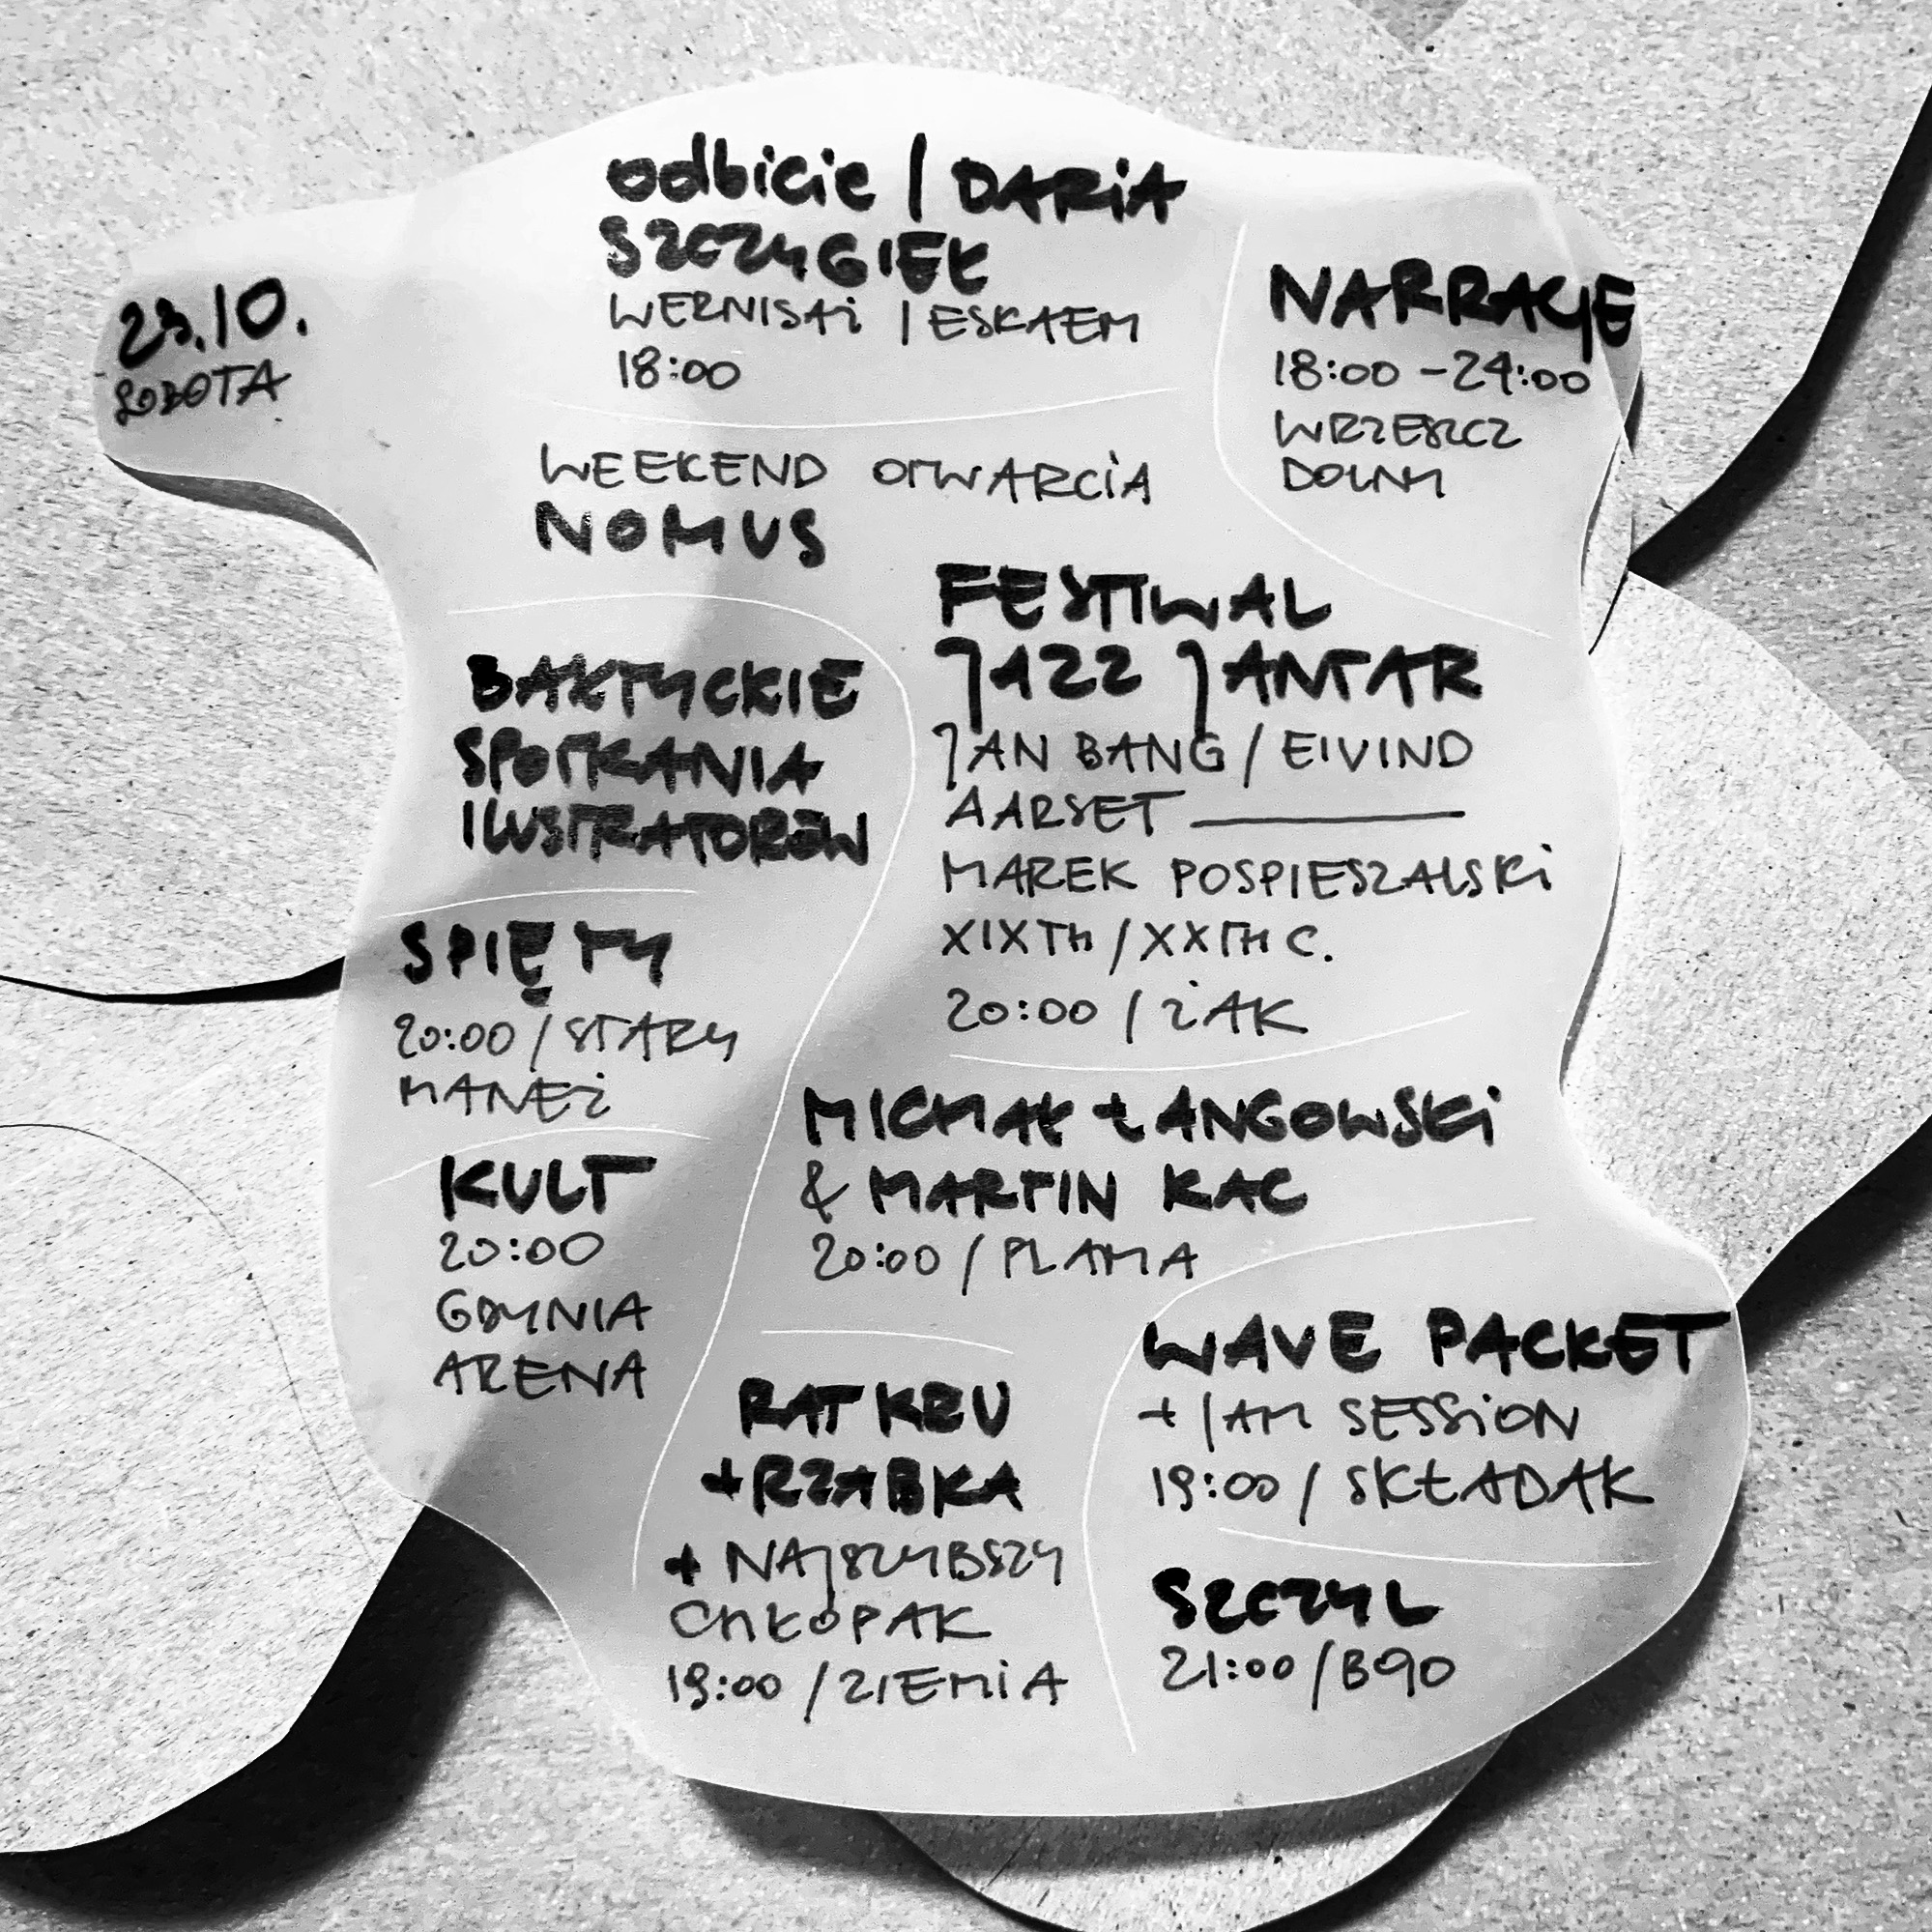 23.10.
SOBOTA
Odbicie / DARiA
SZCZYGIEŁ
WERNISAŻ / ESKAEM
18:00
NARRACJE
18:00 - 24:00
WRZESZCZ
DOLNY
WEEKEND OTWARCIA
NOMUS
BAŁTYCKIE
SPOTKANIA
ILUSTRATORÓW
SPIĘTY
20:00 / STARY
MANEŻ
KULT
20:00
GDYNIA
ARENA
FESTIWAL
JAZZ JANTAR
JAN BANG / EIVIND
AARSET —
MAREK POSPIESZALSKi
XIXTH / XXTH C.
20:00 / ŻAK
MICHAŁ ŁANGOWSKi
& MARTIN KAC
20:00 / PLAMA
RAT KRU
+ RZABKA
+ NAJSZYBSZY
CHŁOPAK
19:00 / ZIEMiA
WAVE PACKET
+ JAM SESSiON
19:00 / SKŁADAK
SZCZYL
21:00 / B90